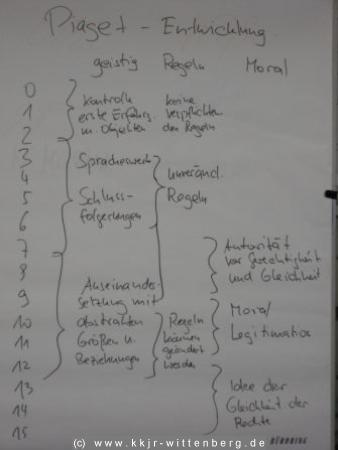 Piaget - Entwicklung
geistig Regeln Moral
0
1
2
3
4
5
6
7
8
9
10
11
12
13
14
15
Kontrolle
erste Erfahr.
m. Objekten
keine
verpflichten
den Regeln
Spracherwerb
Schluss-
folgerungen
unveränd.
Regeln
Autorität
vor Gerechtigkeit
und Gleichheit
Auseinander-
setzung mit
abstrakten
Größen u.
Beziehungen
Regeln
können
geändert
werden
Moral
Legitimation
Idee der
Gleichheit der
Rechte
(c) www.kkjr-wittenberg.de